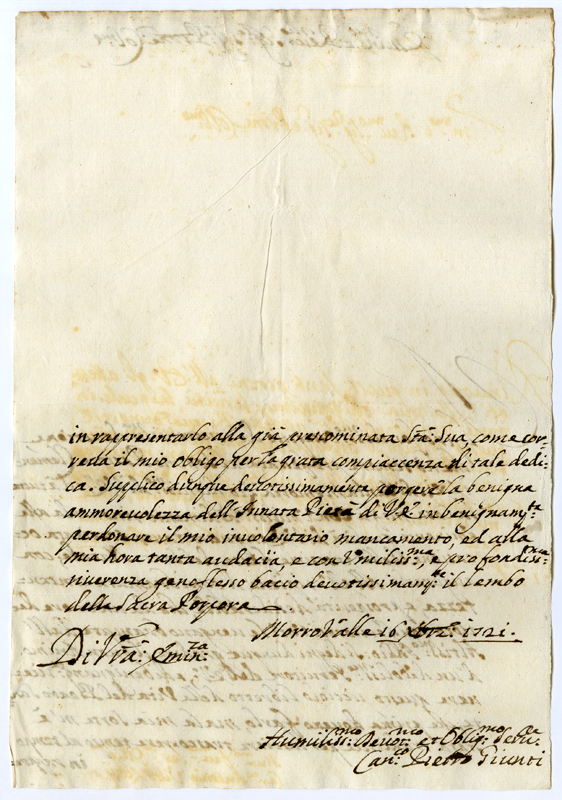 in rappresentarlo alla già prenominata Stà: Sua, come cor-
reva il mio obligo per la grata compiacenza di tale dedi-
ca. Supplico dunque devotissimamente porgere la benigna
ammorevolezza dell'Innata Pietà di V.E. in benignamte
perdonare il mio involontario mancamento, ed alla
mia hora tanta audacia, e con Umiliss:ma, e profondiss:ma
riverenza genoflesso bacio devotissimamte il lembo
della Sacra Porpora
MorroValle 16 Xbre: 1721.
Di Vra: Eminza:
Humiliss:mo Devot:mo et Oblig:mo Servre:
Can:co Pietro Giunti